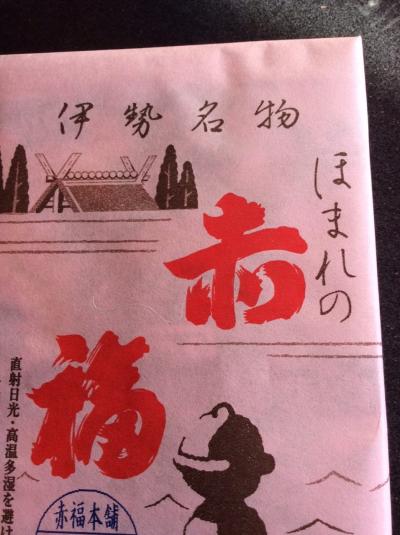 伊勢名物
ほまれの
赤
福
直射日光・高温多湿を避け
赤福本舗